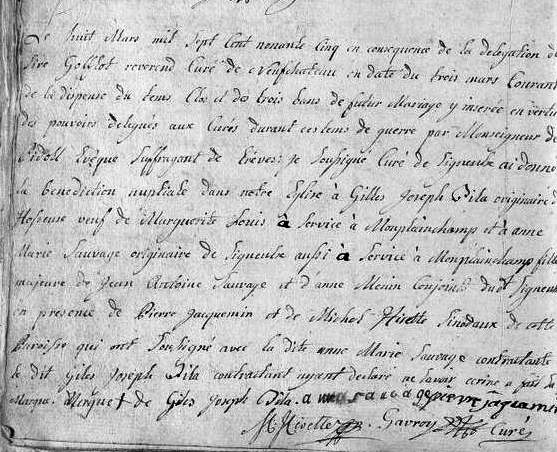 Le huit Mars mil Sept Cent nonante Cinq en consequence de la delegation de
Sire Gofflot reverend Curé de Neufchateau en date du trois mars Courant
de la dispense du tems Clos et des trois bans de futur Mariage y inserée en vertu
des pouvoirs delegués aux Curés durant ces tems de guerre par Monseigneur de
Pidoll Evêque Suffragant de Trèves; je Soussigné Curé de Signeulx ai donné
la benediction nuptiale dans notre Eglise à Gilles Joseph Pila originaire d
veuf de Marguerite Louis à Service à Monplainchamp et à anne
Marie Sauvage originaire de Signeulx aussi à Service à Monplainchamp fille
majeure de Jean Antoine Sauvage et d'anne Menin Conjoints dudt Signeulx
en presence de Pierre Jacquemin et de Michel Hisette Sinodaux de cette
Paroisse qui ont Soussigné avec la dite anne Marie Sauvage contractante
le dit Giles Joseph Pila contractant ayant declaré ne Savoir ecrire a fait sa
Marque. Merque + de Giles Joseph Pila. a m sauvage pierre jaquemin
M: Hisette Gavroy Curé